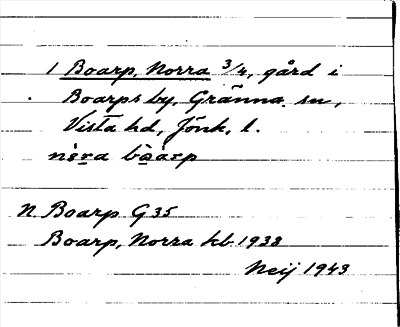 1 Boarp, Norra 3/4, gård i
Boarps by, Gränna sn,
Vista hd, Jönk. l.
nèra bòarp
N Boarp G 35
Boarp, Norra kb 1938
Neij 1943